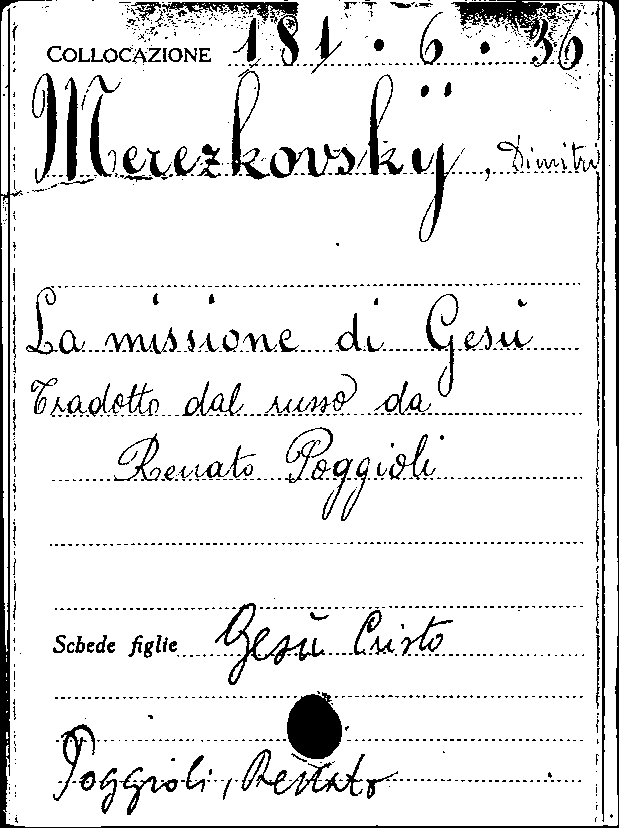 COLLOCAZIONE 181 . 6 . 36
Merezkovskÿ, Dimitri
La missione di Gesù
Tradotto dal russo da
Renato Poggioli
Schede figlie Gesù Cristo
Poggioli, Renato